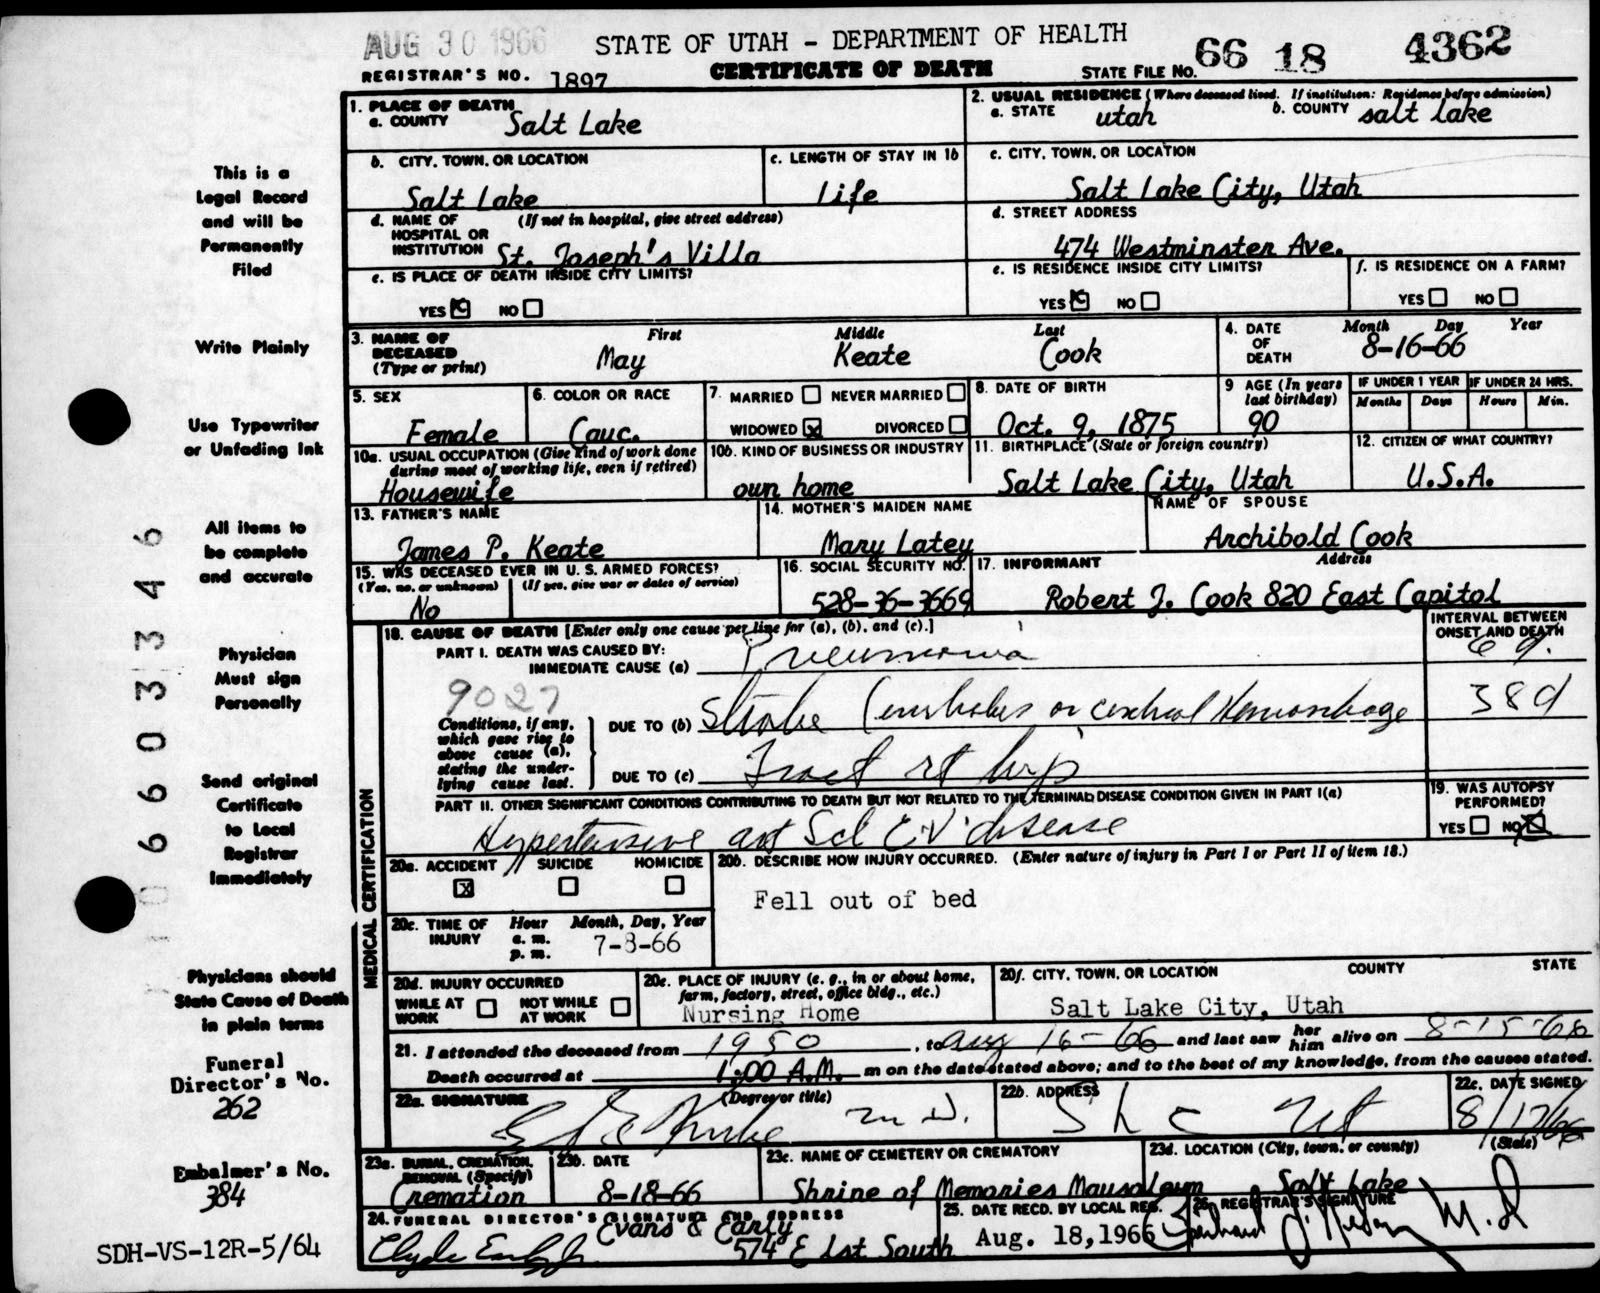 AUG 30 1966
STATE OF UTAH - DEPARTMENT OF HEALTH
CERTIFICATE OF DEATH
REGISTRAR'S NO. 1897
STATE FILE NO. 66 18 4362
1. PLACE OF DEATH
a. COUNTY Salt Lake
2. USUAL RESIDENCE (Where deceased lived. If institution: Residence before admission)
a. STATE Utah b. COUNTY Salt Lake
b. CITY, TOWN, OR LOCATION Salt Lake
c. LENGTH OF STAY IN 1b Life
c. CITY, TOWN, OR LOCATION Salt Lake City, Utah
d. NAME OF HOSPITAL OR INSTITUTION (If not in hospital, give street address) St. Joseph's Villa
d. STREET ADDRESS 474 Westminster Ave.
e. IS PLACE OF DEATH INSIDE CITY LIMITS?
YES NO
e. IS RESIDENCE INSIDE CITY LIMITS?
YES NO
f. IS RESIDENCE ON A FARM?
YES NO
3. NAME OF DECEASED (Type or print)
First Middle Last
May Keate Cook
4. DATE OF DEATH Month Day Year
8-16-66
5. SEX Female
6. COLOR OR RACE Cauc.
7. MARRIED NEVER MARRIED
WIDOWED X DIVORCED
8. DATE OF BIRTH Oct. 9, 1875
9 AGE (In years last birthday) 90
IF UNDER 1 YEAR Months Days
IF UNDER 24 HRS. Hours Min.
10a. USUAL OCCUPATION (Give kind of work done during most of working life, even if retired) Housewife
10b. KIND OF BUSINESS OR INDUSTRY own home
11. BIRTHPLACE (State or foreign country) Salt Lake City, Utah
12. CITIZEN OF WHAT COUNTRY? U.S.A.
13. FATHER'S NAME James P. Keate
14. MOTHER'S MAIDEN NAME Mary Latey
NAME OF SPOUSE Archibold Cook
15. WAS DECEASED EVER IN U. S. ARMED FORCES?
(Yes, no, or unknown) (If yes, give war or dates of service)
No
16. SOCIAL SECURITY NO. 528-36-3669
17. INFORMANT Address
Robert J. Cook 820 East Capitol
18. CAUSE OF DEATH [Enter only one cause per line for (a), (b), and (c).]
INTERVAL BETWEEN ONSET AND DEATH
PART I. DEATH WAS CAUSED BY:
IMMEDIATE CAUSE (a) Pneumonia
9027
Conditions, if any, which gave rise to above cause (a), stating the underlying cause last.
DUE TO (b) Stroke or cerebral Hemorrhage 38d
DUE TO (c) Fract rt hip
PART II. OTHER SIGNIFICANT CONDITIONS CONTRIBUTING TO DEATH BUT NOT RELATED TO THE TERMINAL DISEASE CONDITION GIVEN IN PART I(a)
Hypertensive art Scl C.V. disease
19. WAS AUTOPSY PERFORMED?
YES NO X
20a. ACCIDENT SUICIDE HOMICIDE
X
20b. DESCRIBE HOW INJURY OCCURRED. (Enter nature of injury in Part I or Part II of item 18.)
Fell out of bed
20c. TIME OF INJURY Hour a. m. p. m. Month, Day, Year
7-8-66
20d. INJURY OCCURRED
WHILE AT WORK NOT WHILE AT WORK
20e. PLACE OF INJURY (e. g., in or about home, farm, factory, street, office bldg., etc.)
Nursing Home
20f. CITY, TOWN, OR LOCATION COUNTY STATE
Salt Lake City, Utah
21. I attended the deceased from 1950, to Aug 16-66 and last saw her him alive on 8-15-66
Death occurred at 1:00 A.M. m on the date stated above; and to the best of my knowledge, from the causes stated.
22a. SIGNATURE (Degree or title) M.D.
22b. ADDRESS S L C Ut
22c. DATE SIGNED 8/17/66
23a. BURIAL, CREMATION, REMOVAL (Specify) Cremation
23b. DATE 8-18-66
23c. NAME OF CEMETERY OR CREMATORY Shrine of Memories Mausoleum
23d. LOCATION (City, town, or county) (State) Salt Lake
24. FUNERAL DIRECTOR'S SIGNATURE AND ADDRESS Evans & Early
574 E 1st South
25. DATE RECD. BY LOCAL REG. Aug. 18, 1966
26. REGISTRAR'S SIGNATURE M.D
MEDICAL CERTIFICATION
This is a
Legal Record
and will be
Permanently
Filed
Write Plainly
Use Typewriter
or Unfading Ink
All items to
be complete
and accurate
Physician
Must sign
Personally
Send original
Certificate
to Local
Registrar
Immediately
Physicians should
State Cause of Death
in plain terms
Funeral
Director's No.
262
Embalmer's No.
384
SDH-VS-12R-5/64
106603346